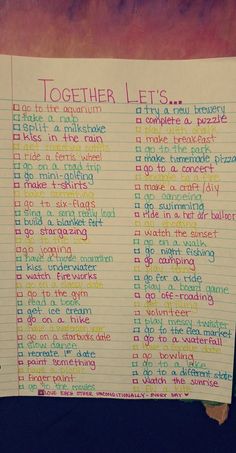 TOGETHER LET'S...
go to the aquarium
take a nap
split a milkshake
kiss in the rain
ride a ferris wheel
go on a road trip
go mini-golfing
make t-shirts
bake something
go to six-flags
sing a song really loud
build a blanket fort
go stargazing
go jogging
have a movie marathon
kiss underwater
watch fireworks
go on a classy date
go to the gym
read a book
get ice cream
go on a hike
go on a starbucks date
slow dance
recreate 1st date
paint something
finger paint
go to the movies
try a new brewery
complete a puzzle
play with chalk
make breakfast
go to the park
make homemade pizza
go to a concert
make a craft/diy
go canoeing
go swimming
ride in a hot air balloon
watch the sunset
go on a walk
go night fishing
go camping
go for a ride
play a board game
go off-roading
volunteer
play messy twister
go to the flea market
go to a waterfall
go bowling
go to a lake
go to a different state
watch the sunrise
LOVE EACH OTHER UNCONDITIONALLY - EVERY DAY ♥